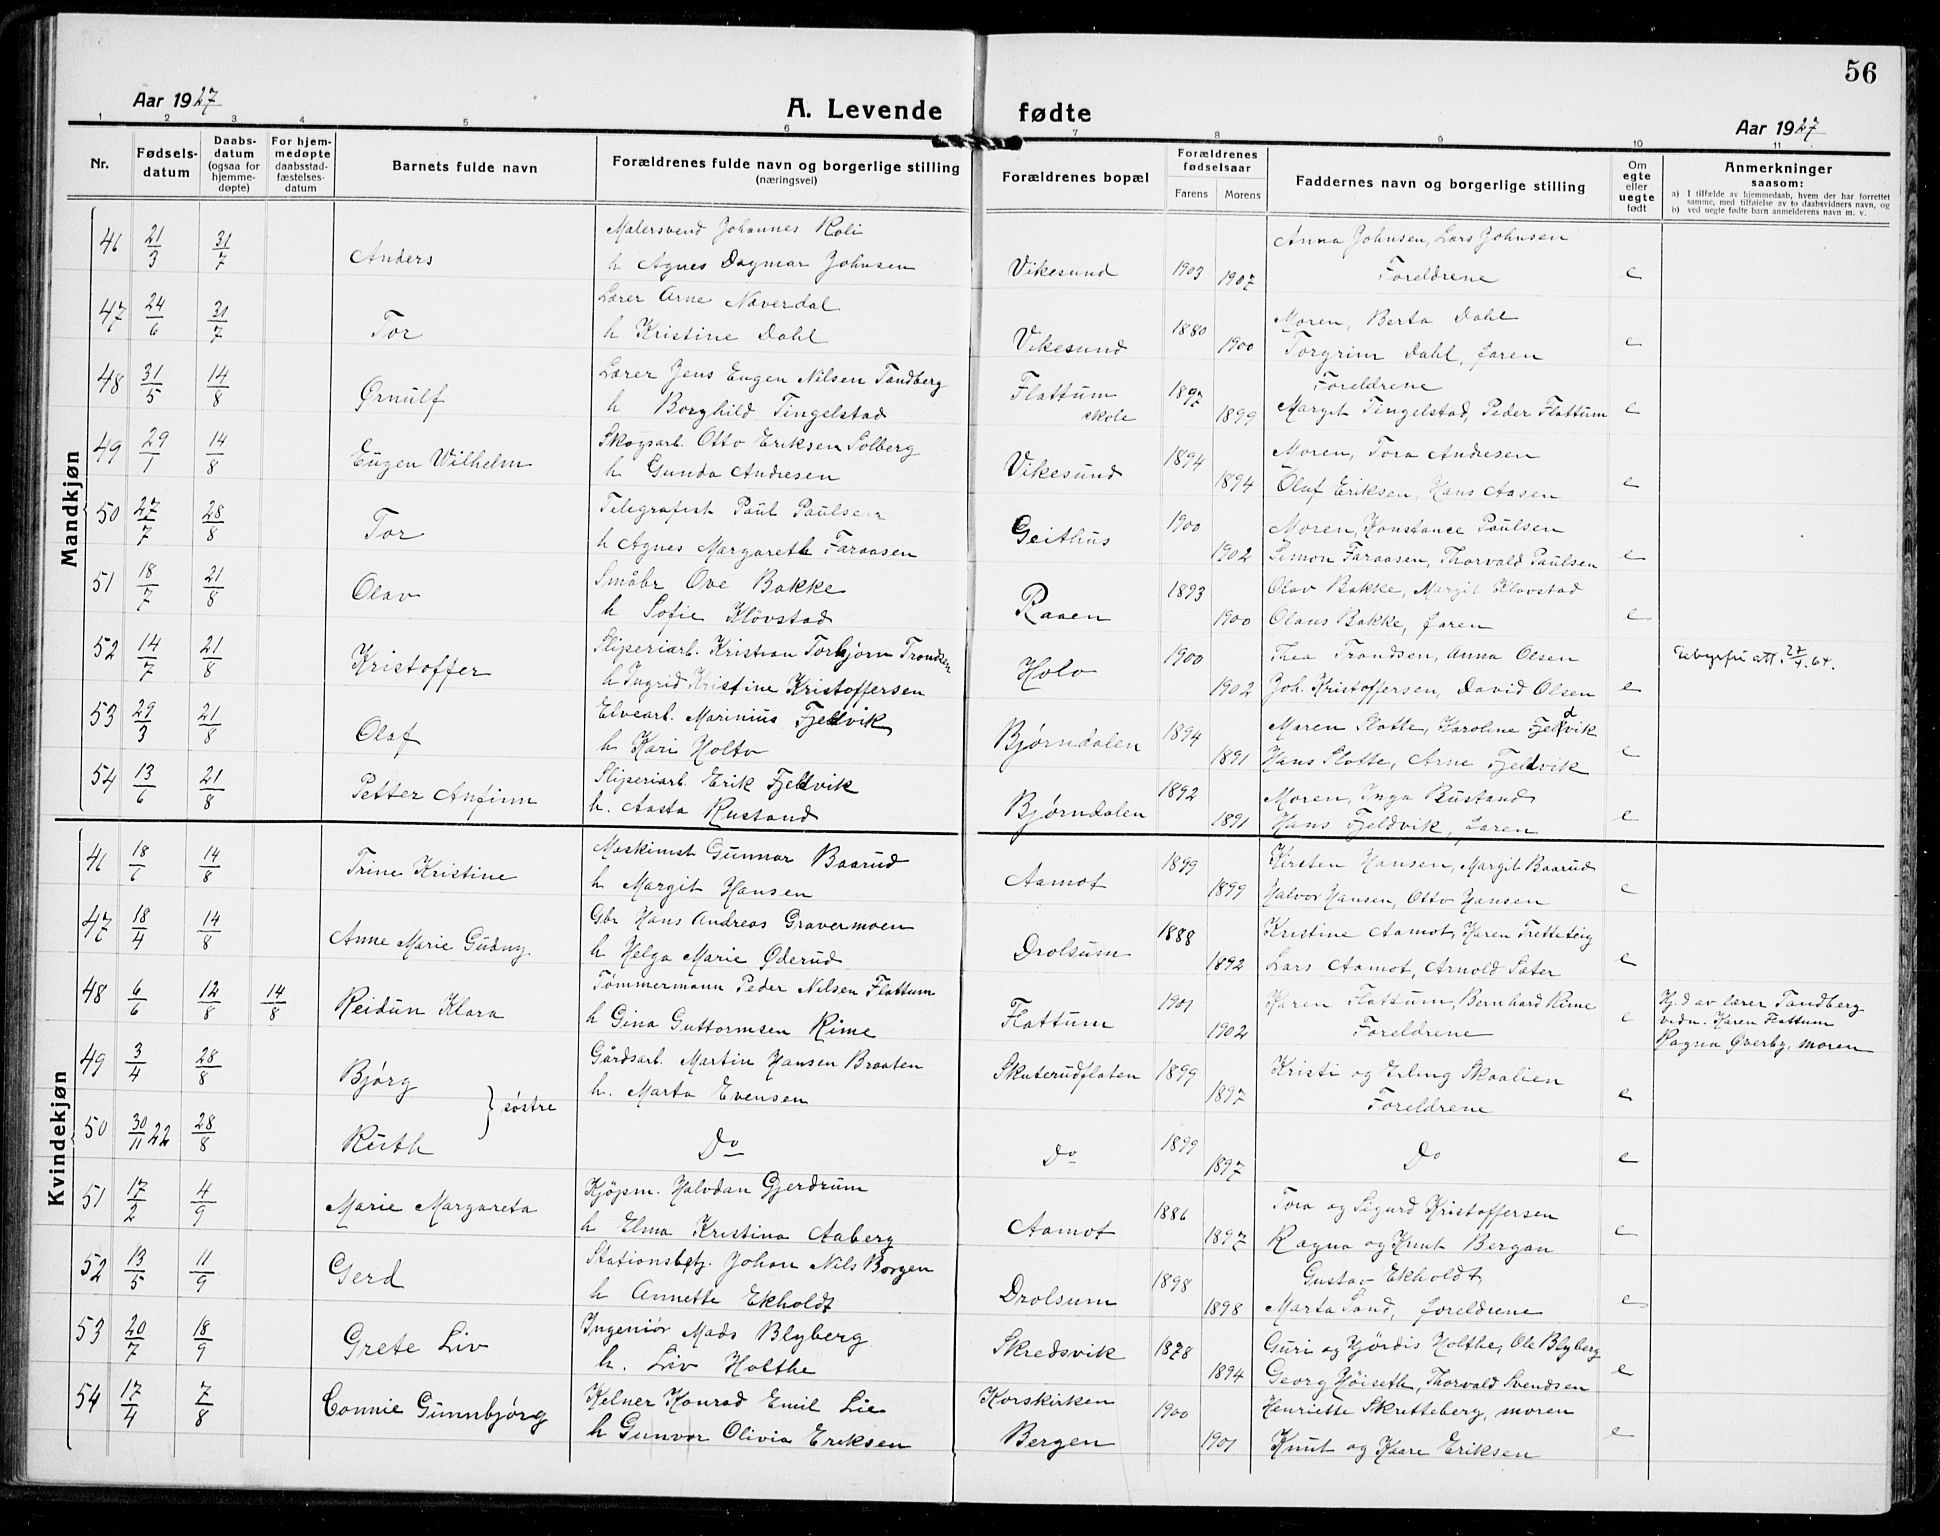 56
Aar 1927
A. Levende fødte
Aar 1927
1 2 3 4 5 6 7 8 9 10 11
Nr.
Fødsels-
datum
Daabs-
datum
(ogsaa for
hjemme-
døpte)
For hjem-
medøpte
daabsstad-
fæstelses-
datum
Barnets fulde navn
Forældrenes fulde navn og borgerlige stilling
(næringsvei)
Forældrenes bopæl
Forældrenes
fødselsaar
Farens Morens
Faddernes navn og borgerlige stilling
Om
egte
eller
uegte
født
Anmerkninger
saasom:
a) I tilfælde av hjemmedaab, hvem der har forrettet
samme, med tilføielse av to daabsvidners navn, og
b) ved uegte fødte barn anmelderens navn m. v.
Mandkjøn
Malersvend Johannes Roli Anna Johnsen, Lars Johnsen
46 21/3 31/7 Anders h Agnes Dagmar Johnsen Vikesund 1903 1907 Foreldrene e
Lærer Arne Naverdal Moren, Berta Dahl
47 24/6 31/7 Tor h Kristine Dahl Vikesund 1880 1900 Torgrim Dahl, faren e
Lærer Jens Eugen Nilsen Tandberg Flattum Foreldrene
48 31/5 14/8 Ørnulf h Borghild Tingelstad skole 1897 1899 Margit Tingelstad, Peder Flattum e
Skogsarb. Otto Eriksen Solberg Moren, Tora Andresen
49 29/1 14/8 Eugen Wilhelm h Gunda Andresen Vikesund 1894 1894 Olaf Eriksen, Hans Aasen e
Telegrafist Paul Paulsen Moren, Konstance Paulsen
50 27/7 28/8 Tor h Agnes Margareth Faraasen Geithus 1900 1902 Simon Faraasen, Thorvald Paulsen e
Småbr Ove Bakke Olav Bakke, Margit Klovstad
51 18/7 21/8 Olav h Sofie Klövstad Raaen 1893 1900 Olaus Bakke, faren e
Sliperiarb. Kristian Torbjørn Trondsen Thea Trondsen, Anna Olsen
52 14/7 21/8 Kristoffer h Ingrid Kristine Kristoffersen Holo 1900 1902 Joh. Kristoffersen, David Olsen e att. 27/4.64.
Elvearb. Marinius Fjeldvik Maren Slotte, Karoline Fjeldvik
53 29/3 21/8 Olaf h Kari Holto Bjørndalen 1894 1891 Hans Slotte, Arne Fjeldvik e
Sliperiarb. Erik Fjeldvik Moren, Inga Bustand
54 13/6 21/8 Petter Anfinn h. Aasta Rustand Bjørndalen 1892 1891 Hans Fjeldvik, faren e
Kvindekjøn
Maskinist Gunnar Baarud Kirsten Hansen, Margit Baarud
46 14/8 Trine Kristine h Margit Hansen Aamot 1899 1899 Halvor Hansen, Otto Hansen e
Gbr Hans Andreas Gravermoen Kristine Aamot, Karen Tretteteig
47 18/4 14/8 Anne Marie Gudny h Helga Marie Øderud Drolsum 1888 1892 Lars Aamot, Arnold Sater e
Tømmermann Peder Nilsen Flattum Karen Flattum, Bernhard Rime Hj.d av lærer Tandberg
48 6/6 12/8 14/8 Reidun Klara h Gina Guttormsen Rime Flattum 1901 1902 Foreldrene e vidn. Karen Flattum
Ragna Øverby, moren
Gårdsarb. Martin Hansen Braaten Kristi og Erling Skaalien
49 3/4 28/8 Bjørg h. Marta Evensen Skuterudflaten 1899 1897 Foreldrene e
søstre
50 30/11 22 28/8 Ruth Do Do 1899 1897 Do e
Kjöpm. Halvdan Gjerdrum Tora og Sigurd Kristoffersen
51 17/2 4/9 Marie Margareta h Elma Kristina Aaberg Aamot 1886 1897 Ragna og Knut Bergan e
Stationsbetj. Johan Nils Borgen Gustav Ekholdt
52 13/5 11/9 Gerd h Annette Ekholdt Drolsum 1898 1898 Marta Sand, foreldrene e
Ingeniör Mads Blyberg Guri og Hjördis Holthe, Ole Blyberg
53 20/7 18/9 Grete Liv h. Liv Holthe Skredsvik 1878 1894 Georg Höiseth, Thorvald Svendsen e
Kelner Konrad Emil Lie Korskirken Henriette Skretteberg, moren
54 17/4 7/8 Connie Gunnbjørg h Gunvor Olivia Eriksen Bergen 1900 1901 Knut og Kaare Eriksen e